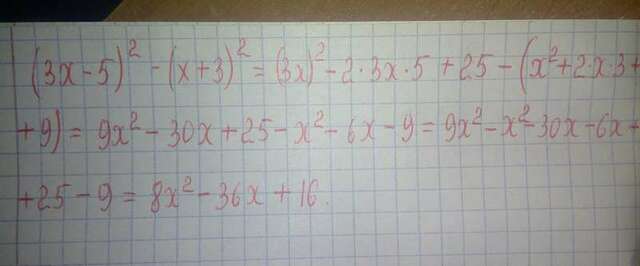 (3x-5)² - (x+3)² = (3x)² - 2·3x·5 + 25 - (x²+2·x·3+
+9) = 9x² - 30x + 25 - x² - 6x - 9 = 9x² - x² - 30x - 6x +
+25 - 9 = 8x² - 36x + 16.